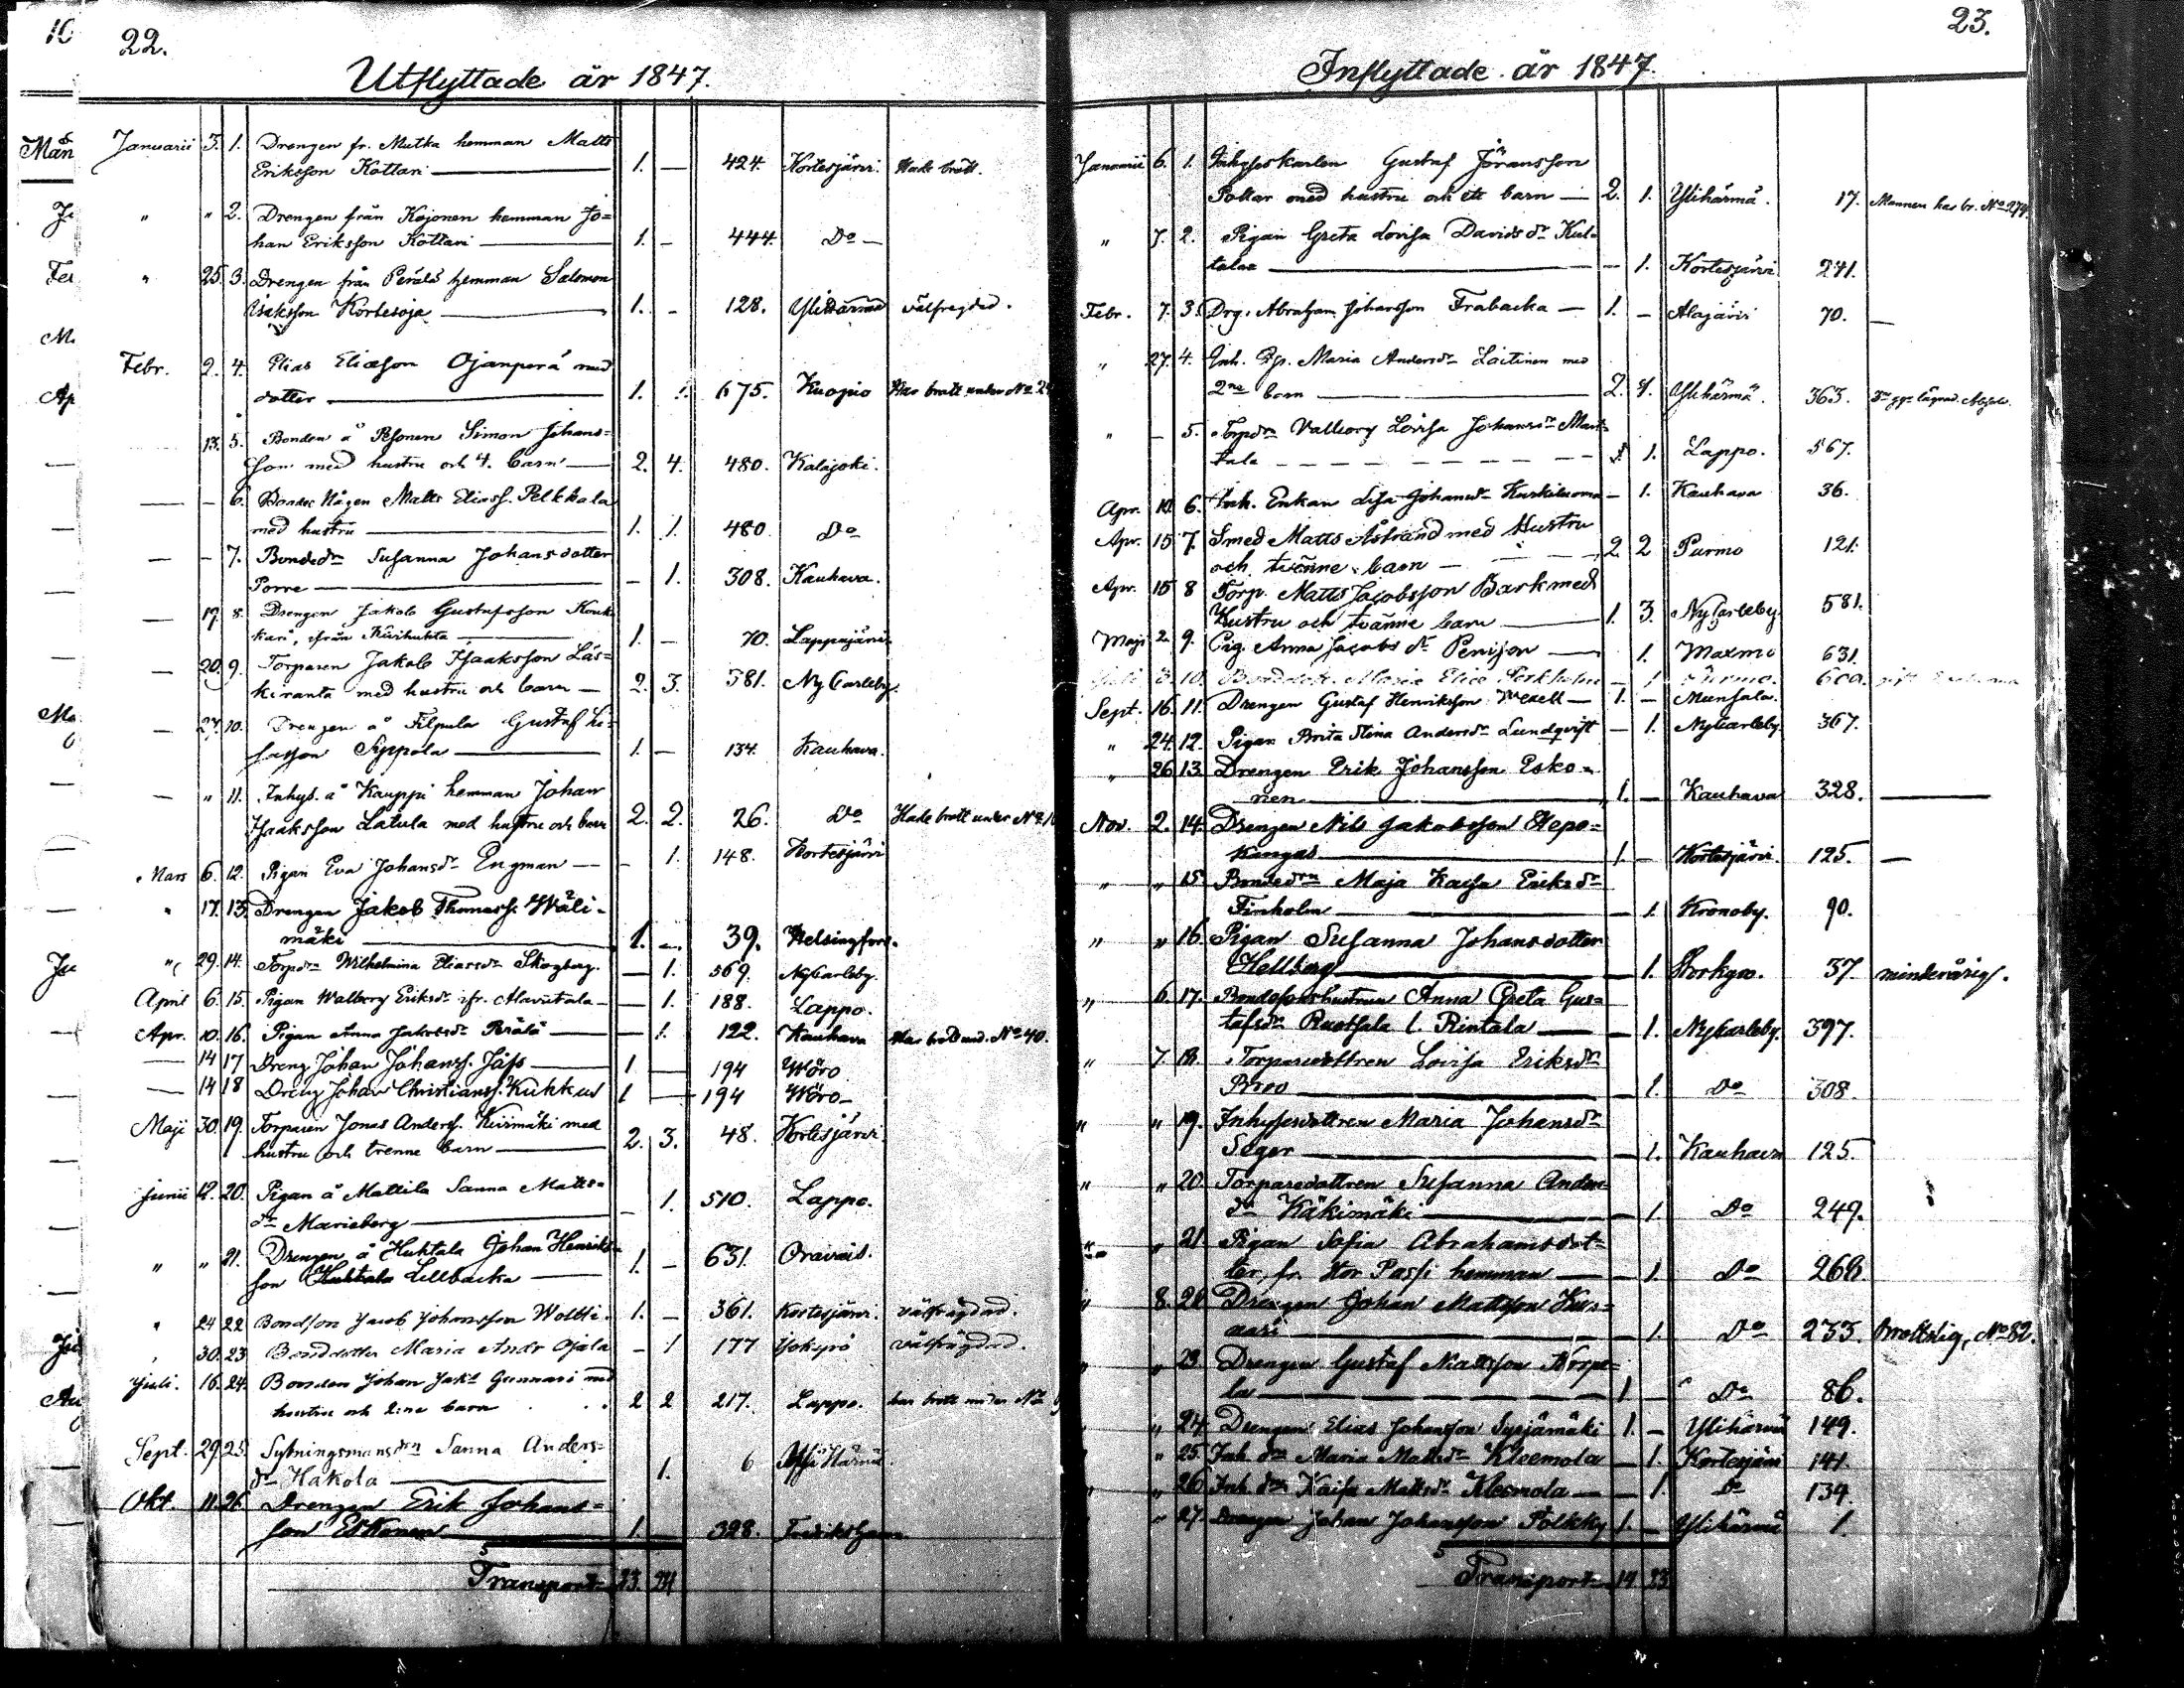 22.
Utflyttade år 1847.
Januarii 3. 1. Drengen fr. Mutka hemman Matts
Eriksson Kottari — 1. — 424. Kortesjärvi. Hade brått.
" " 2. Drengen från Kojonen hemman Jo=
han Eriksson Kottari — 1. - 444. Do —
" 25. 3. Drengen från Perälä hemman Salomon
Isaksson Kortesoja — 1. - 128. Ylihärmä välfregdad.
Febr. 2. 4. Elias Eliasson Ojanperä med
dotter — 1. 1. 675. Kuopio Har brott under No
13. 5. Bonden å Pesonen Simon Johans=
son med hustru och 4. barn — 2. 4. 480. Kalajoki.
— - 6. Bonde Mågen Matts Eliass. Pelkkala
med hustru — 1. 1. 480. Do
— - 7. Bondedr Susanna Johansdotter
Porre — - 1. 308. Kauhava.
— 17. 8. Drengen Jakob Gustafsson
från — 1. - 70. Lappajärvi
— 20. 9. Torparen Jakob Isaaksson Läs=
kiranta med hustru och barn — 2. 3. 381. NyCarleby.
— 27. 10. Drengen å Filpula Gustaf
Sippola — 1. — 134. Kauhava.
— " 11. Inhys. å Kauppi hemman Johan
Isaaksson Latula med hustru och barn 2. 2. 26. Do Hade brott under No
Mars 6. 12. Pigan Eva Johansdr Engman — - 1. 148. Kortesjärvi
" 17. 13. Drengen Jakob Thomass. Wäli-
mäki — 1. - 39. Helsingfors.
" 29. 14. Torpdr Wilhelmina Eliasdr Skogberg. — 1. 569. NyCarleby.
April 6. 15. Pigan Walborg Eriksdr fr. Alavutala — 1. 188. Lappo.
Apr. 10. 16. Pigan Anna Jakobsdr Perälä — 1. 122. Kauhava Har brott und. No 40.
— 14 17 Dreng Johan Johanss. Jåfs — 1 — 194 Wörö
— 14 18 Dreng Johan Christianss. Kukkus 1 — 194 Wörö —
Maji 30. 19. Torparen Jonas Anderss. Kiirimäki med
hustru och trenne barn — 2. 3. 48. Kortesjärvi.
Junii 12. 20. Pigan å Mattila Sanna Matts=
dr Marieberg — - 1. 510. Lappo.
" " 21. Drengen å Huhtala Johan Henriks=
son Lillbacka — 1. - 631. Oravais.
" 24 22 Bondson Jacob Johansson Woltti. 1. - 361. Kortesjärvi. välfrägdad.
" 30. 23 Bonddotter Maria Andr Ojala - 1 177 Ylikyrö välfrägdad.
Juli. 16. 24. Bonden Johan Jakb Gunnari med
hustru och 2:ne barn 2 2 217. Lappo. har brott under No
Sept. 29. 25. Sytningsmansdrn Sanna Anders=
dr Hakola — 1. 6
Okt. 11. 26. Drengen Erik Johans=
son Eskonen — 1. — 328. Fredrikshamn
Transport 23. 24
23.
Inflyttade år 1847.
Januarii 6. 1. Inhyseskarlen Gustaf Jöransson
med hustru och ett barn — 2. 1. Ylihärmä. 17. Mannen har br. No 274.
" 7. 2. Pigan Greta Lovisa Davidsdr
— - 1. Kortesjärvi 241.
Febr. 7. 3. Drg. Abraham Johansson Frabacka — 1. - Alajärvi 70. —
" 27. 4. Inh. Maria Andersdr Laitinen med
2ne barn — 2. Ylihärmä. 363.
" - 5. Torpdr Valborg Lovisa Johansdr
1. Lappo. 567.
Apr. 10. 6. Inh. Enkan Lisa Johansdr Kuskiluoma - 1. Kauhava 36.
Apr. 15 7. Smed Matts Åstrand med Hustru
och tvänne barn — 2 2 Purmo 121.
Apr. 15 8 Torp. Matts Jacobsson Bark med
Hustru och tvänne barn — 1. 3. NyCarleby. 581.
Maji 2 9. Pig. Anna Jacobsdr — 1. Maxmo 631.
10. Maria
Sept. 16. 11. Drengen Gustaf Henriksson Wexell — 1. - Munsala.
" 24. 12. Pigan Brita Stina Andersdr Lundqvist — 1. NyCarleby. 367.
" 26 13. Drengen Erik Johansson Esko=
nen — 1. — Kauhava 328. —
Nov. 2. 14. Drengen Nils Jakobsson Hepo=
kangas — 1. — Kortesjärvi. 125. —
" " 15 Bondedrn Maja Kajsa Eriksdr
Finholm — 1. Kronoby. 90.
" " 16. Pigan Susanna Johansdotter
Hellberg — 1. Storkyro. 37. minderårig.
" 6. 17. Bondesonshustrun Anna Greta Gus=
tafsdr Ruotsala l. Rintala — 1. NyKarleby. 397.
" 7. 18. Torparedottren Lovisa Eriksdr
— 1. Do 308.
" " 19. Inhysesdottren Maria Johansdr
Seger — 1. Kauhava 125.
" " 20. Torparedottren Susanna Anders=
dr Käkimäki — 1. Do 249.
" " 21. Pigan Sofia Abrahamsdot=
ter, fr. Stor Passi hemman — 1. Do 268.
" 8. 22 Drengen Johan Mattsson
— 1. Do 233. Brottslig, No 82.
" " 23. Drengen Gustaf Mattsson Korpe=
la — 1. - Do 86.
" " 24. Drengen Elias Johansson Syrjämäki 1. - Ylihärmä 149.
" " 25. Inh. drn Maria Mattsdr Kleemola — 1. Kortesjärvi 141.
" " 26. Inh. drn Kaisa Mattsdr Kleemola — 1. Do 139.
" " 27. Drengen Johan Johansson Pölkky 1. — Ylihärmä 1.
Transport 19 23